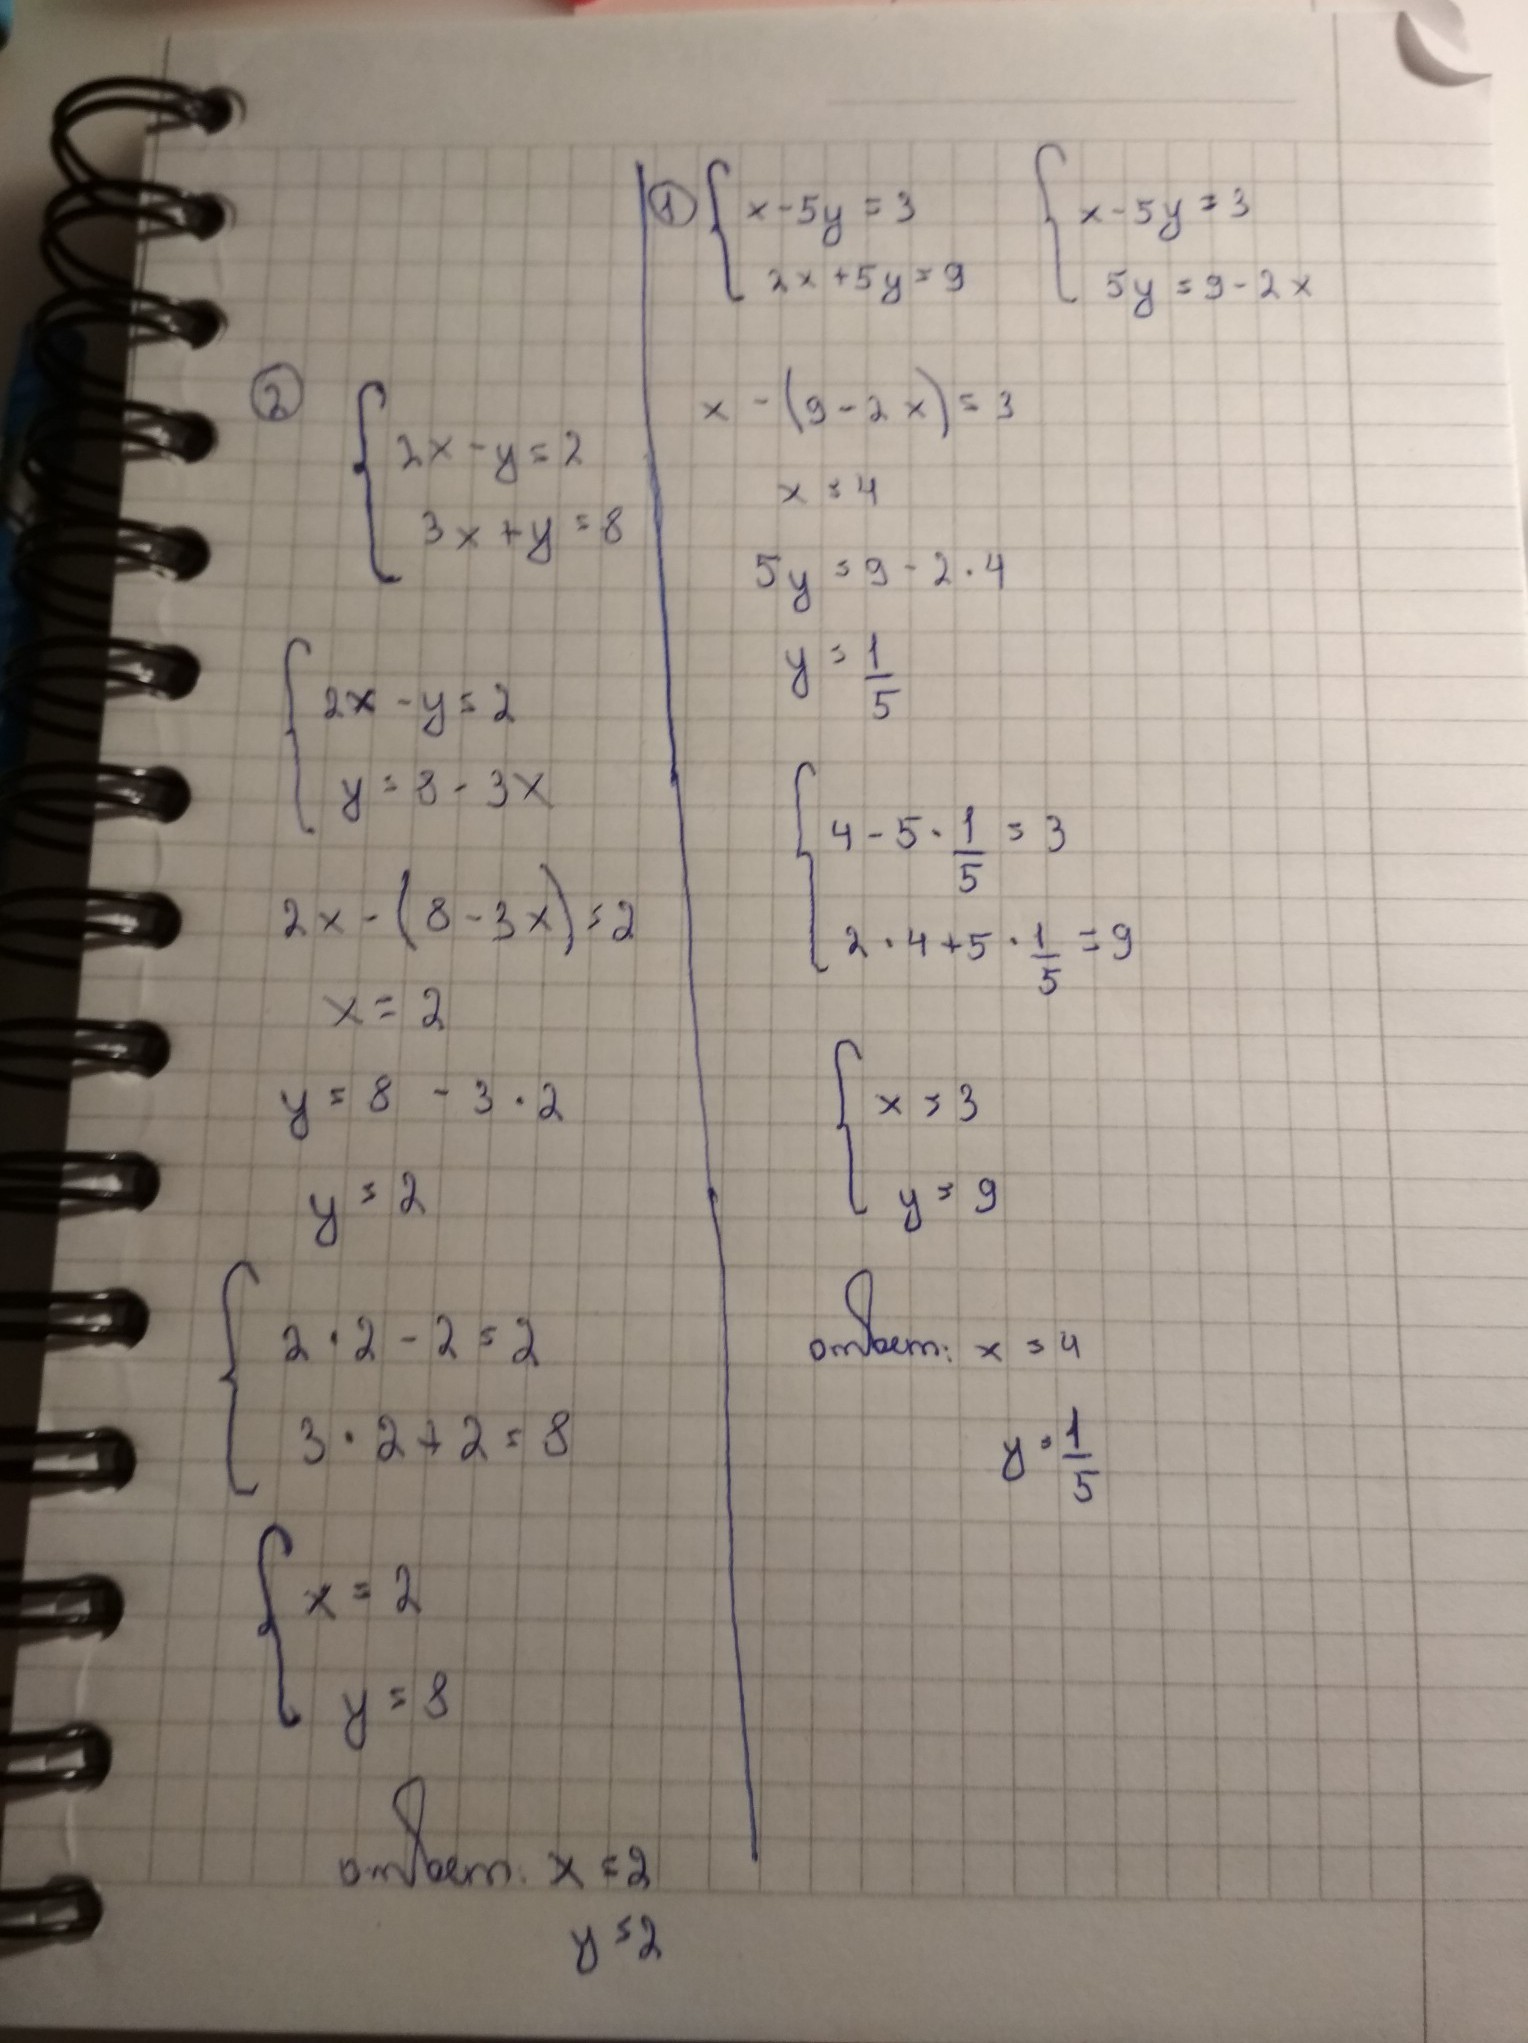 ① { x - 5y = 3 { x - 5y = 3
2x + 5y = 9 5y = 9 - 2x
x - (9 - 2x) = 3
x = 4
5y = 9 - 2 · 4
y = 1/5
{ 4 - 5 · 1/5 = 3
2 · 4 + 5 · 1/5 = 9
{ x = 3
y = 9
ответ: x = 4
y = 1/5
② { 2x - y = 2
3x + y = 8
{ 2x - y = 2
y = 8 - 3x
2x - (8 - 3x) = 2
x = 2
y = 8 - 3 · 2
y = 2
{ 2 · 2 - 2 = 2
3 · 2 + 2 = 8
{ x = 2
y = 8
ответ: x = 2
y = 2